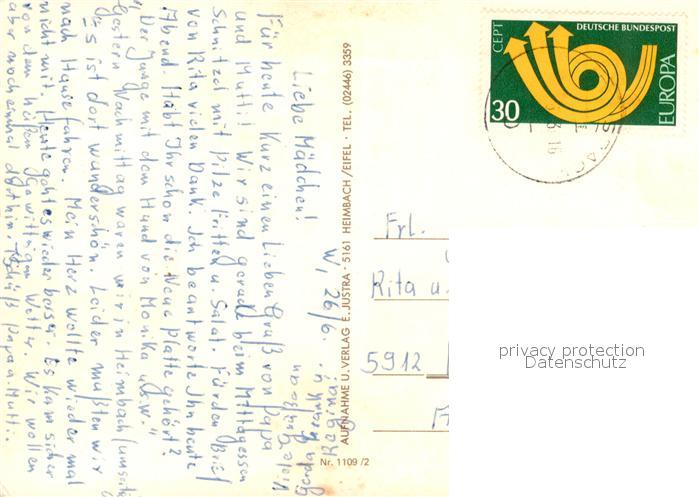 W, 26/6.
Liebe Mädchen!
Für heute kurz einen Lieben Gruß von Papa
und Mutti! Wir sind gerade beim Mittagessen
Schnitzel mit Pilze Fritten u. Salat. Für den Brief
von Rita vielen Dank. Ich beantworte Ihn heute
Abend. Habt Ihr schon die Neue Platte gehört?
"Der Junge mit dem Hund von Monika" usw."
Gestern Nachmittag waren wir in Heimbach (umseitig
Es ist dort wunderschön. Leider mußten wir
nach Hause fahren. Mein Herz wollte wieder mal
nicht mit. Heute geht es wieder besser. Es kam sicher
von dem heißen Gewittrigen Wetter. Wir wollen
aber noch einmal dorthin. Tschüß Papa u. Mutti.
Regina!
AUFNAHME U. VERLAG E. JUSTRA · 5161 HEIMBACH/EIFEL · TEL. (02446) 3359
Nr. 1109/2
CEPT
DEUTSCHE BUNDESPOST
EUROPA
30
Frl.
Rita u.
5912
privacy protection
Datenschutz